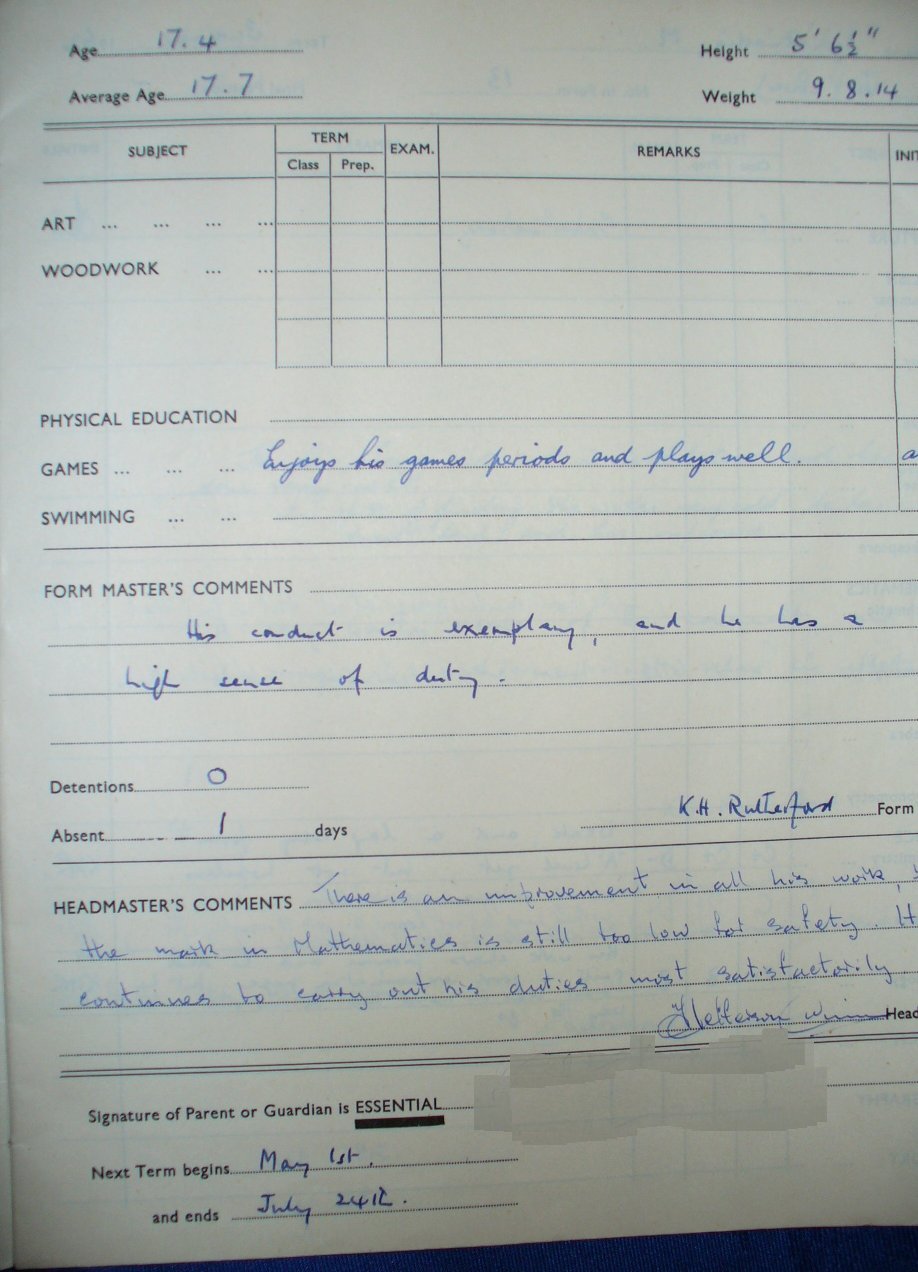 Age 17.4 Height 5' 6½"
Average Age 17.7 Weight 9.8.14
SUBJECT TERM EXAM. REMARKS INIT
Class Prep.
ART ... ... ... ...
WOODWORK ... ...
PHYSICAL EDUCATION
GAMES ... ... ... Enjoys his games periods and plays well. a
SWIMMING ... ...
FORM MASTER'S COMMENTS
His conduct is exemplary, and he has a
high sense of duty.
Detentions 0
K.H. Rutherford Form
Absent 1 days
HEADMASTER'S COMMENTS There is an improvement in all his work,
the mark in Mathematics is still too low for safety. H
continues to carry out his duties most satisfactorily
Head
Signature of Parent or Guardian is ESSENTIAL
Next Term begins May 1st.
and ends July 24th.